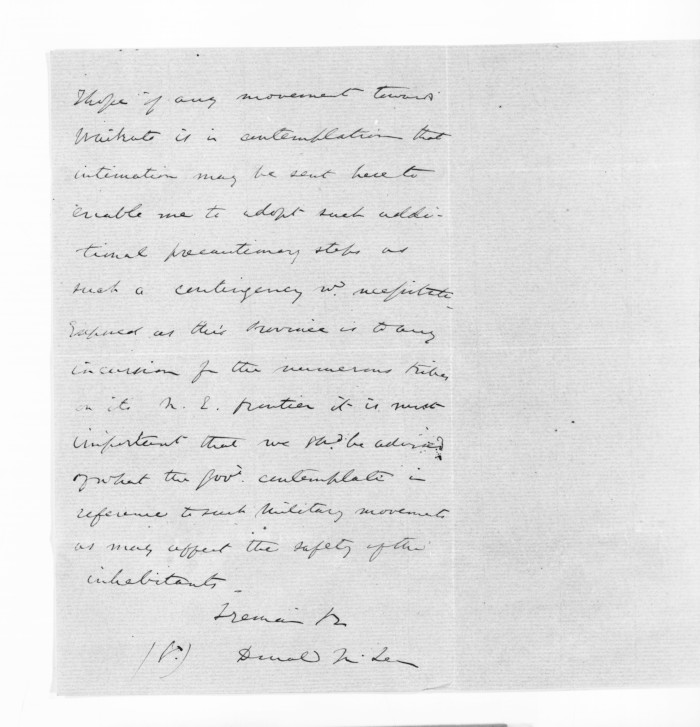 I hope if any movement towards
Waikato is in contemplation that
intimation may be sent here to
enable me to adopt such addi-
tional precautionary steps as
such a contingency wd. necessitate
Exposed as this Province is to any
incursion fr the numerous tribes
on its N. E. frontier it is most
important that we shd. be advised
of what the Govt. contemplate in
reference to such Military movements
as may affect the safety of the
inhabitants
I remain &c
Donald McLean